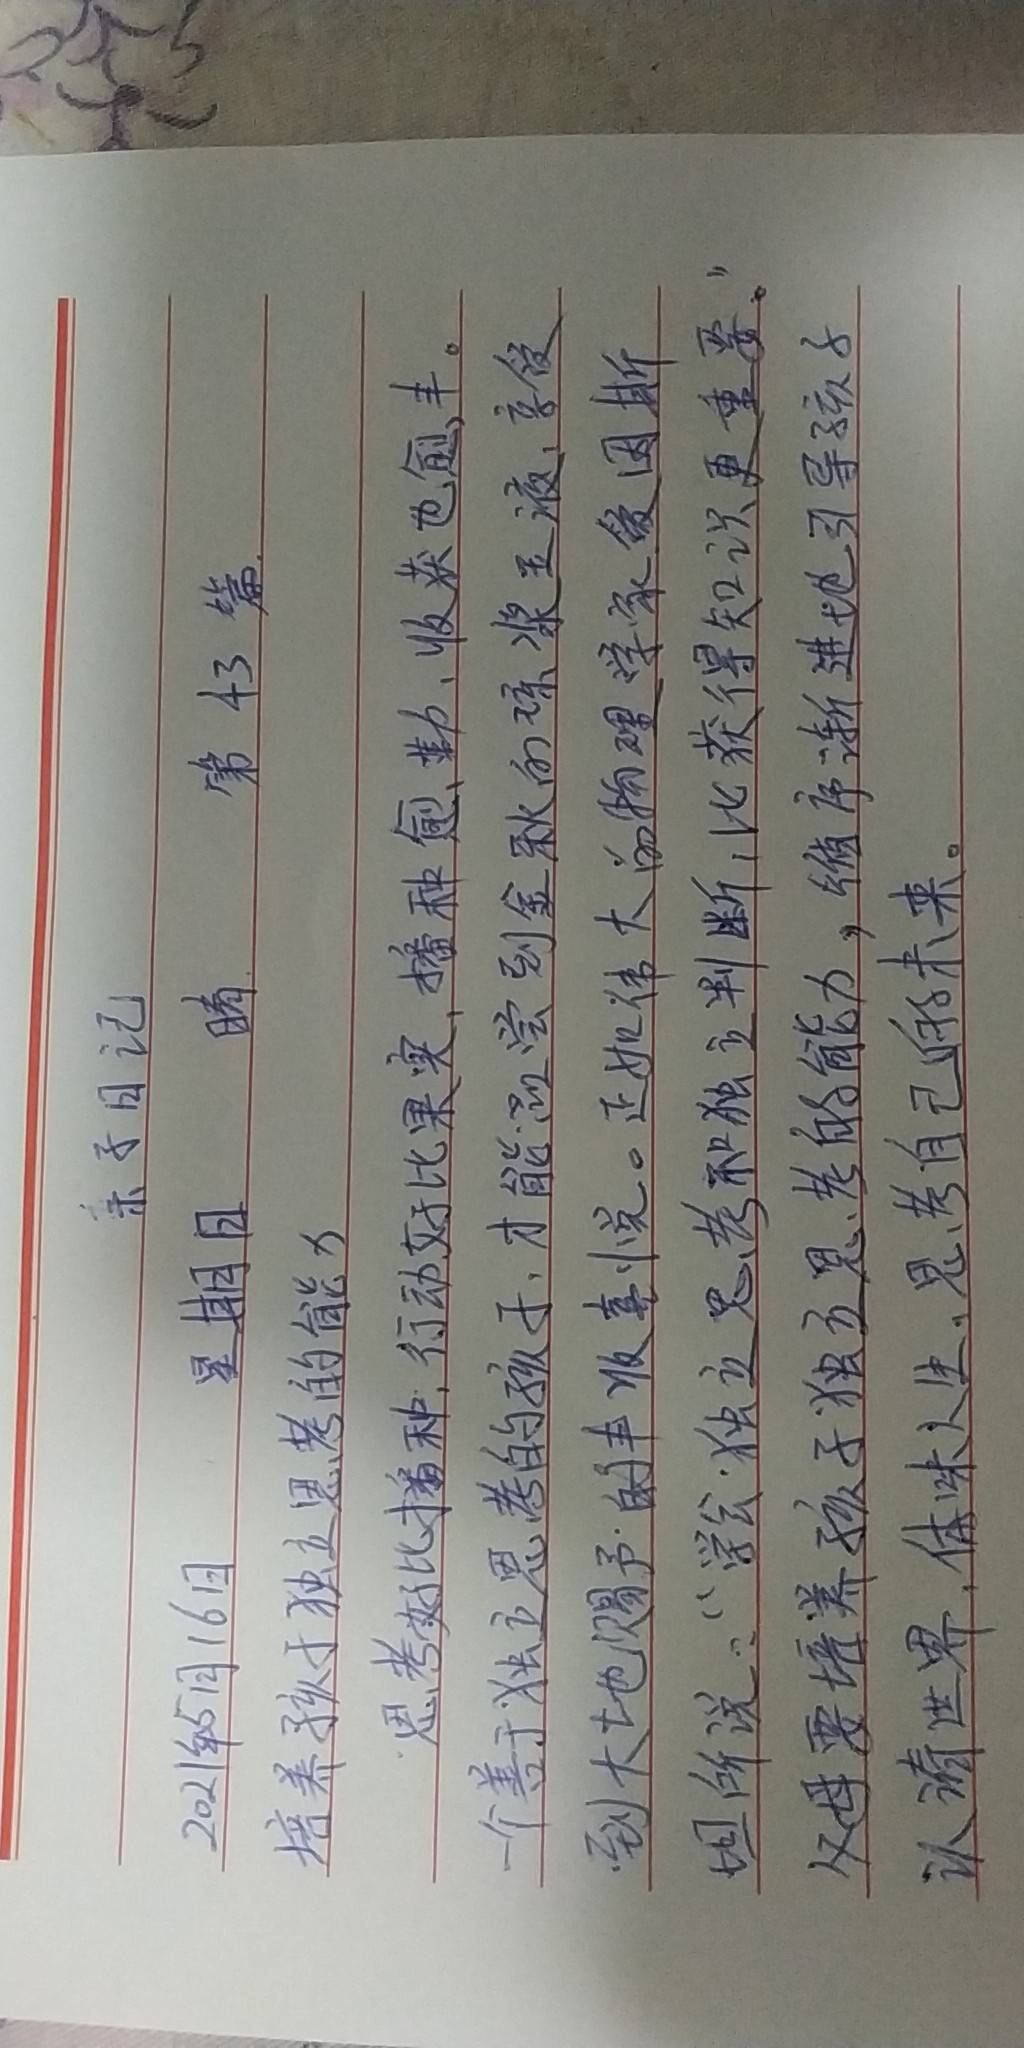 亲子日记
2021年5月16日 星期日 晴 第43篇
培养孩子独立思考的能力
思考好比播种,行动好比果实,播种愈勤,收获也愈丰。
一个善于独立思考的孩子,才能品尝到金秋的琼浆玉液,享受
到大地赐予的丰收喜悦。正如伟大的物理学家爱因斯
坦所说:“学会独立思考和独立判断,比获得知识更重要。”
父母要培养孩子独立思考的能力,循序渐进地引导孩子
认清世界,体味人生,思考自己的未来。